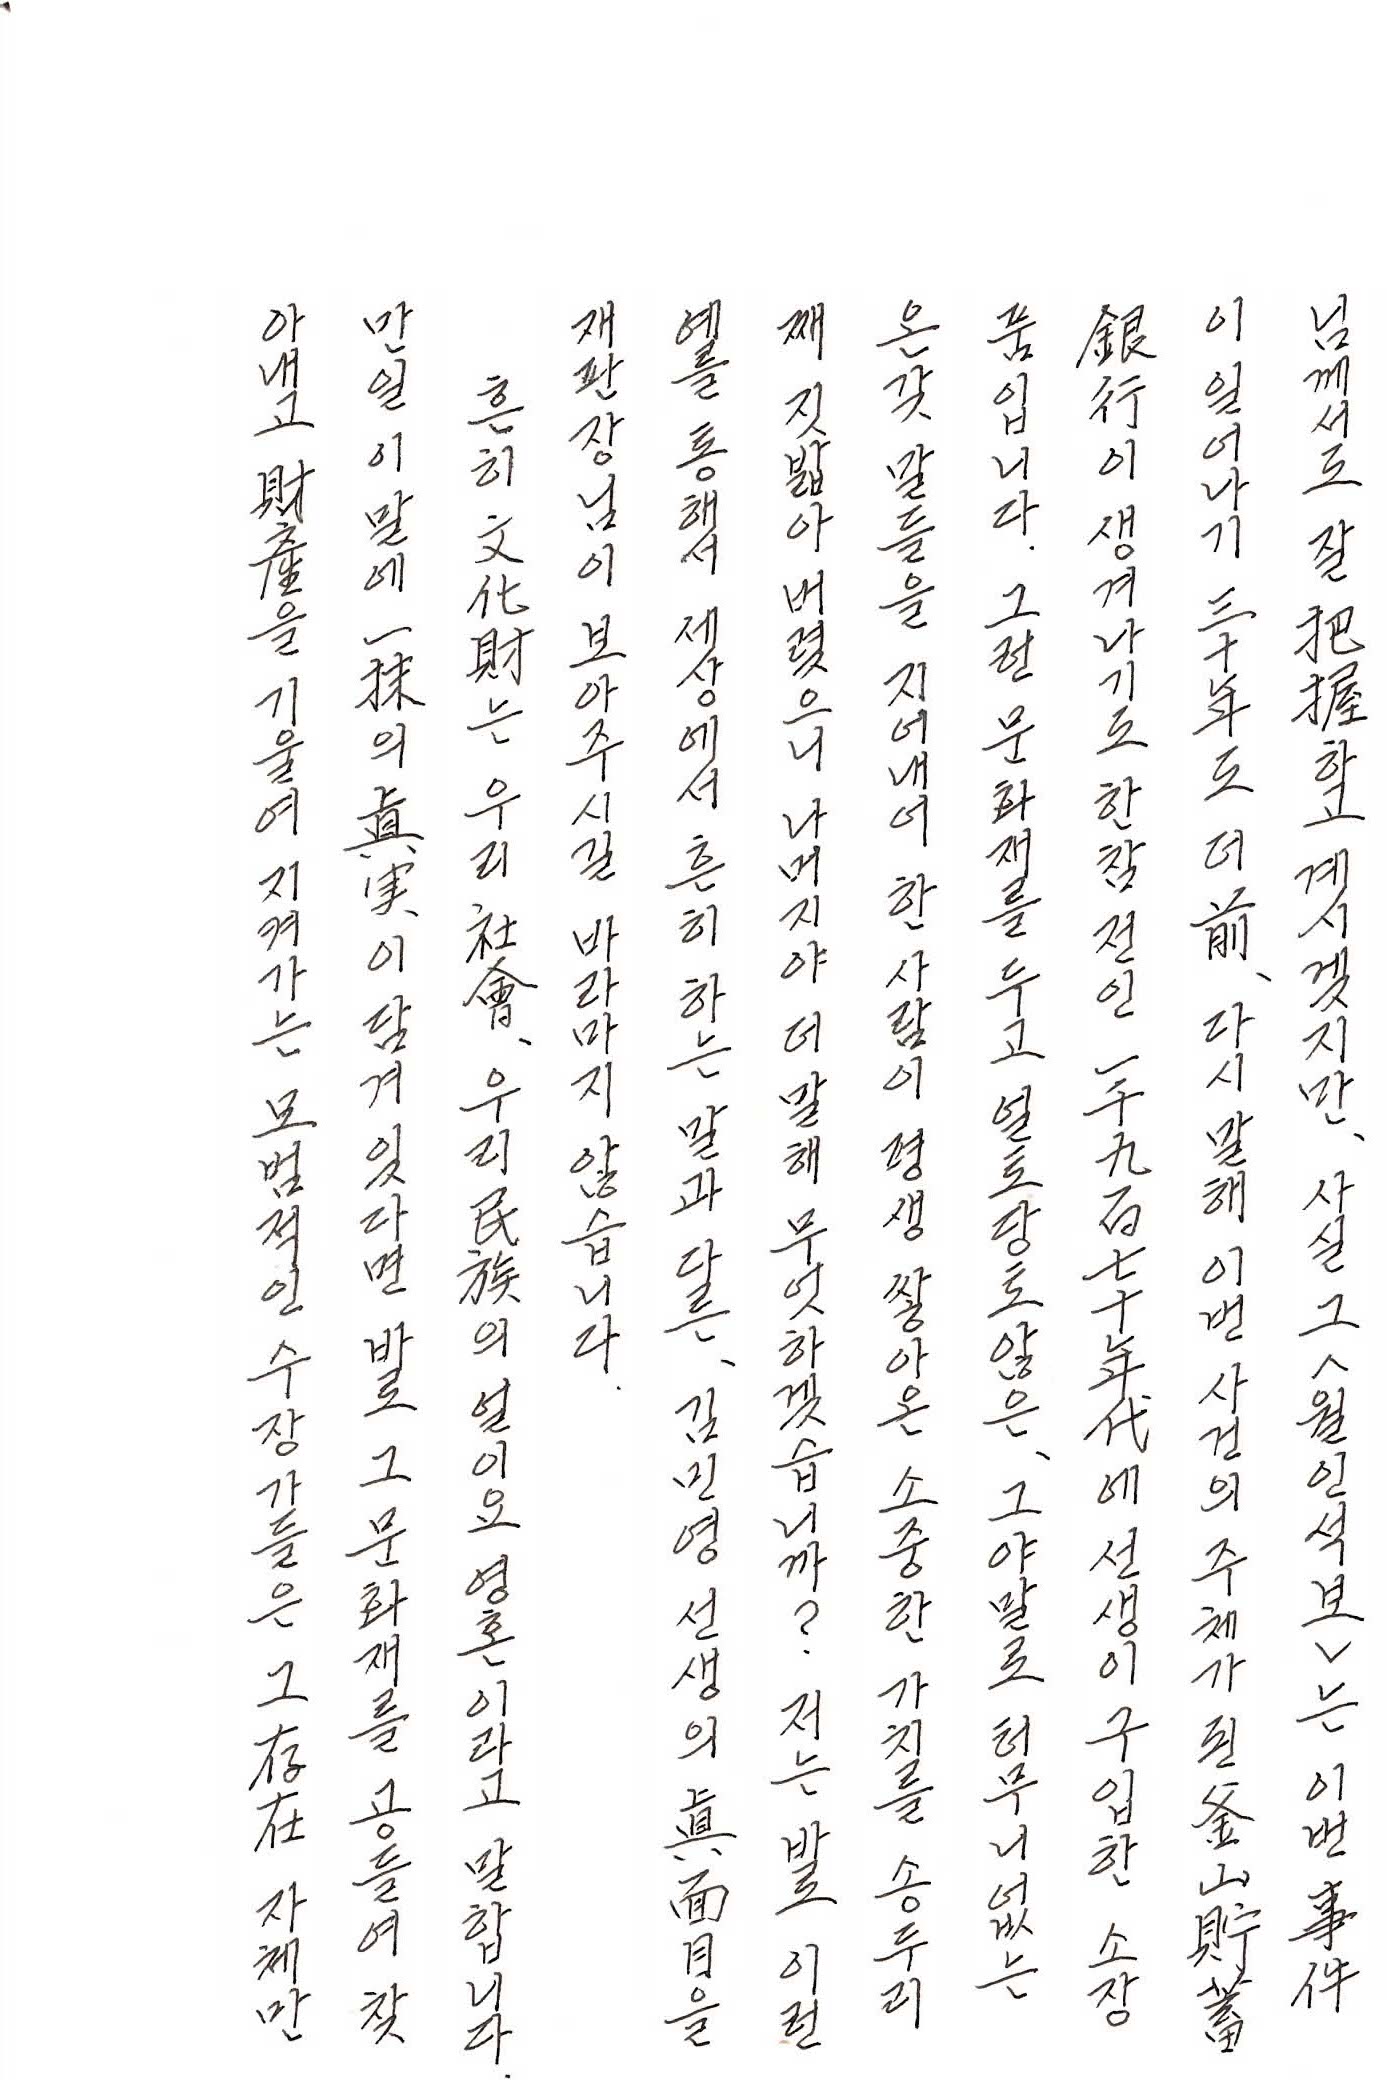 님께서도 잘 把握하고 계시겠지만、 사실 그 <월인석보>는 이번 事件
이 일어나기 三十年도 더 前、 다시 말해 이번 사건의 주체가 된 釜山貯蓄
銀行이 생겨나기도 한참 전인 一千九百七十年代에 선생이 구입한 소장
품입니다. 그런 문화재를 두고 얼토당토않은、 그야말로 허무니없는
온갖 말들을 지어내어 한 사람이 평생 쌓아온 소중한 가치를 송두리
째 짓밟아 버렸으니 나머지야 더 말해 무엇하겠습니까?. 저는 발로 이런
예를 통해서 세상에서 흔히 하는 말과 달른、 김민영 선생의 眞面目을
재판장님이 보아주시길 바라마지 않습니다.
흔히 文化財는 우리 社會、 우리 民族의 얼이요 영혼이라고 말합니다.
만일 이 말에 一抹의 眞実이 담겨 있다면 발로 그 문화재를 공들여 찾
아내고 財産을 기울여 지켜가는 모범적인 수장가들은 그 存在 자체만